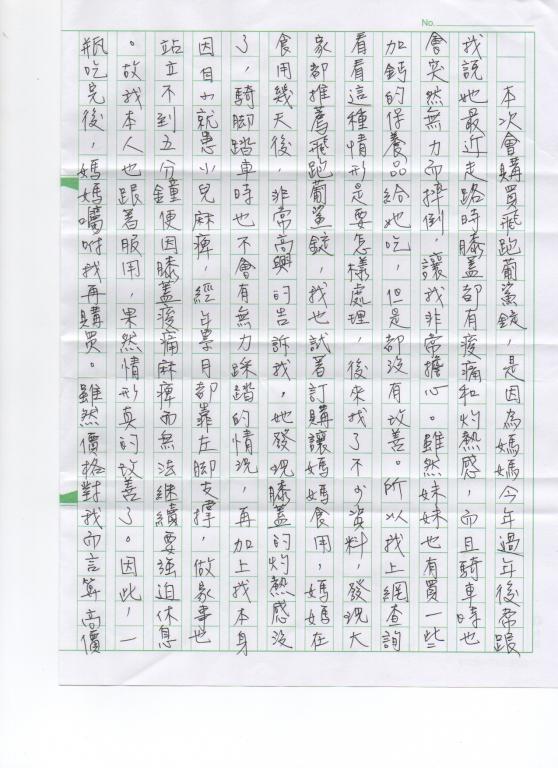 No.
本次會購買飛跑葡鯊錠，是因為媽媽今年過年後常跟
我說她最近走路時膝蓋都有痠痛和灼熱感，而且騎車時也
會突然無力而摔倒，讓我非常擔心。雖然妹妹也有買一些
加鈣的保養品給她吃，但是都沒有改善。所以我上網查詢
看看這種情形是要怎樣處理，後來找了不少資料，發現大
家都推薦飛跑葡鯊錠，我也試著訂購讓媽媽食用，媽媽在
食用幾天後，非常高興的告訴我，她發現膝蓋的灼熱感沒
了，騎腳踏車時也不會有無力踩踏的情況，再加上我本身
因自小就患小兒麻痺，經年累月都靠左腳支撐，做家事也
站立不到五分鐘便因膝蓋痠痛麻痺而無法繼續要強迫休息
。故我本人也跟著服用，果然情形真的改善了。因此，一
瓶吃完後，媽媽囑咐我再購買。雖然價格對我而言算高價